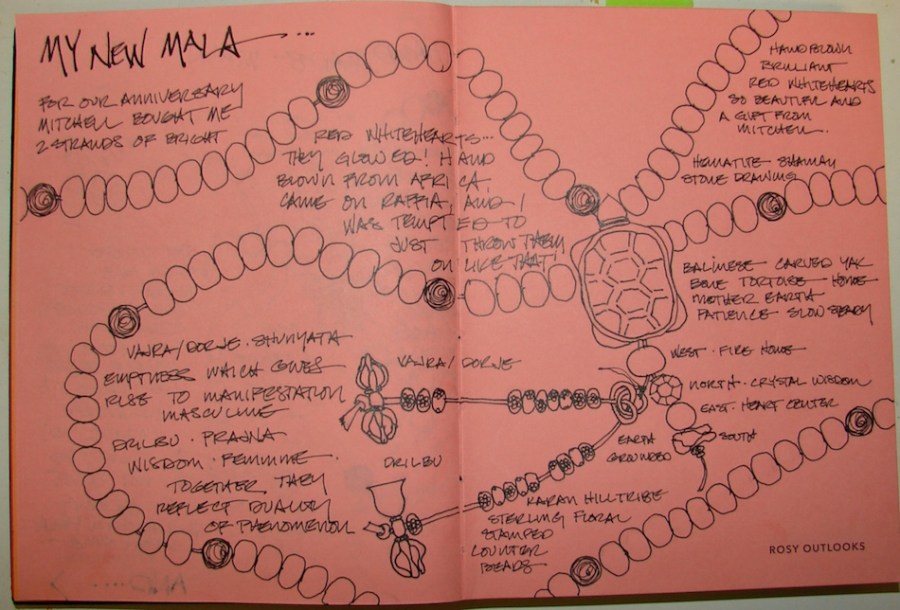 MY NEW MALA ....
FOR OUR ANNIVERSARY
MITCHELL BOUGHT ME
2 STRANDS OF BRIGHT
RED WHITEHEARTS...
THEY GLOWED! HAND
BLOWN FROM AFRICA,
CAME ON RAFFIA, AND I
WAS TEMPTED TO
JUST THROW THEM
ON LIKE THAT!
HAND BLOWN
BRILLIANT
RED WHITEHEARTS
SO BEAUTIFUL AND
A GIFT FROM
MITCHELL.
HEMATITE SHAMAN
STONE DRAWING
BALINESE CARVED YAK
BONE TORTOISE HOME
MOTHER EARTH
PATIENCE SLOW STEADY
WEST · FIRE HOME
NORTH · CRYSTAL WISDOM
EAST · HEART CENTER
SOUTH
EARTH
GROUNDED
VAJRA/DORJE · SHUNYATA
EMPTINESS WHICH GIVES
RISE TO MANIFESTATION
MASCULINE
DRILBU · PRAJNA
WISDOM · FEMININE ·
TOGETHER THEY
REFLECT DUALITY
OF PHENOMENON
VAJRA/DORJE
DRILBU
KAREN HILLTRIBE
STERLING FLORAL
STAMPED
COUNTER
BEADS
ROSY OUTLOOKS